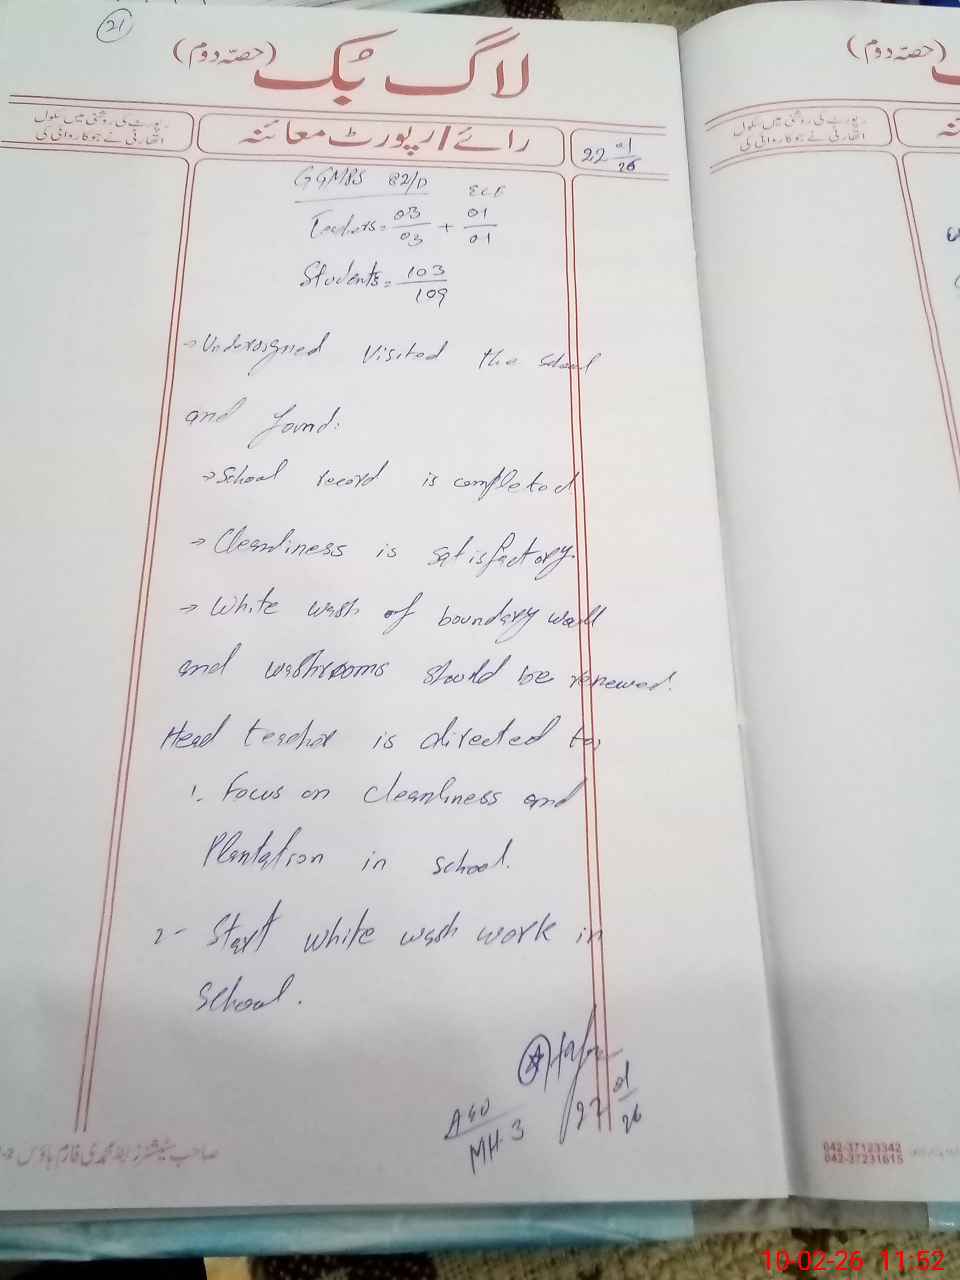 21
لاگ بک (حصّہ دوم)
(حصّہ دوم)
رپورٹ کی روشنی میں سکول
اتھارٹی نے جو کاروائی کی
رائے/رپورٹ معائنہ
22 01/26
رپورٹ کی روشنی میں سکول
اتھارٹی نے جو کاروائی کی
GGMPS 82/D ECE
Teachers = 03/03 + 01/01
Students = 103/109
→ Undersigned visited the school
and found:
→ School record is completed
→ Cleanliness is satisfactory.
→ White wash of boundary wall
and washrooms should be renewed.
Head teacher is directed to,
1. Focus on cleanliness and
Plantation in school.
2- Start white wash work in
school.
22 01/26
AEO
MH-3
042-37123342
042-37231615
10-02-26 11:52